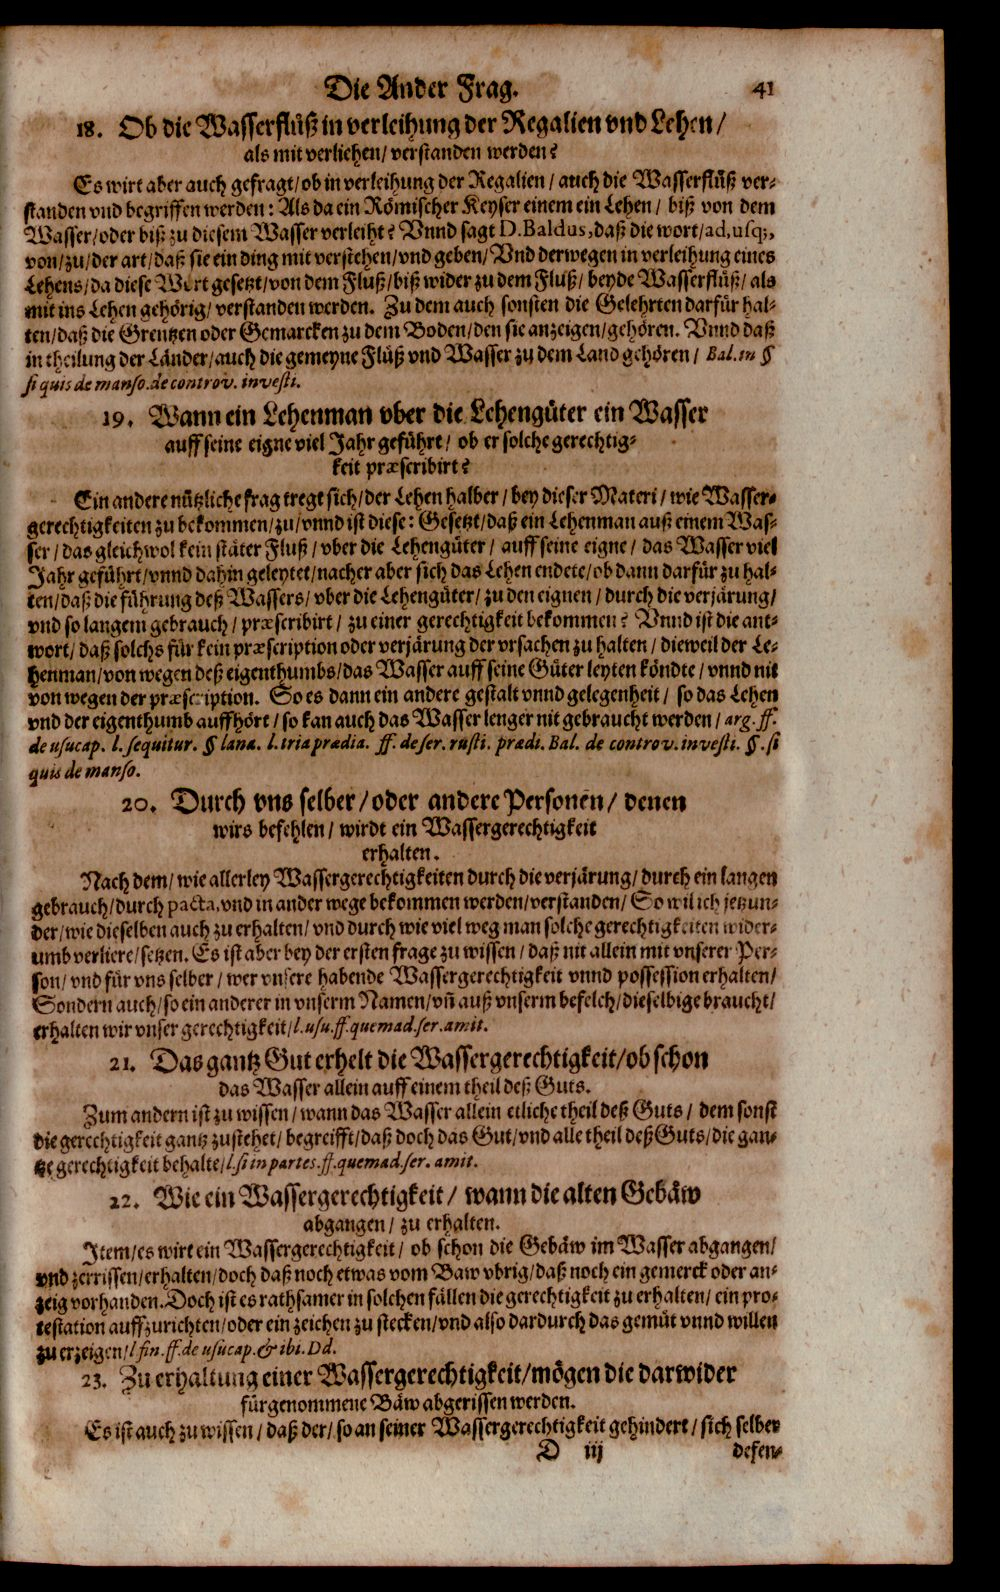 Die Ander Frag. 41
18. Ob die Wasserflüß in verleihung der Regalien vnd Lehen/
als mit verliehen/ verstanden werden?
Es wirt aber auch gefragt/ ob in verleihung der Regalien/ auch die Wasserflüß ver-
standen vnd begriffen werden: Als da ein Römischer Keyser einem ein Lehen/ biß von dem
Wasser/oder biß zu diesem Wasser verleiht? Vnnd sagt D. Baldus, daß die wort/ad, usq;,
von/zu/der art/daß sie ein ding mit verstehen/vnd geben/ Vnd derwegen in verleihung eines
Lehens/da diese Wort gesetzt/von dem Fluß/biß wider zu dem Fluß/ beyde Wasserflüß/ als
mit ins Lehen gehörig/ verstanden werden. Zu dem auch sonsten die Gelehrten darfür hal-
ten/daß die Grentzen oder Gemarcken zu dem Boden/den sie anzeigen/gehören. Vnnd daß
in theilung der Länder/auch die gemeyne Flüß vnd Wasser zu dem Land gehören/ Bal. in §
si quis de manso. de controv. investi.
19. Wann ein Lehenman vber die Lehengüter ein Wasser
auff seine eigne viel Jahr geführt/ ob er solche gerechtig-
keit præscribirt?
Ein andere nützliche frag tregt sich/der Lehen halber/ bey dieser Materi/ wie Wasser-
gerechtigkeiten zu bekommen/zu/vnnd ist diese: Gesetzt/daß ein Lehenman auß einem Was-
ser/ das gleichwol kein stäter Fluß/ vber die Lehengüter/ auff seine eigne/ das Wasser viel
Jahr geführt/vnnd dahin geleytet/nacher aber sich das Lehen endete/ob dann darfür zu hal-
ten/daß die führung deß Wassers/ vber die Lehengüter/ zu den eignen/ durch die verjärung/
vnd so langem gebrauch/ præscribirt/ zu einer gerechtigkeit bekommen? Vnnd ist die ant-
wort/ daß solchs für kein præscription oder verjärung der vrsachen zu halten/ dieweil der Le-
henman/von wegen deß eigenthumbs/das Wasser auff seine Güter leyten köndte/ vnnd nit
von wegen der præscription. So es dann ein andere gestalt vnnd gelegenheit/ so das Lehen
vnd der eigenthumb auffhört/so kan auch das Wasser lenger nit gebraucht werden/ arg. ff.
de usucap. l. sequitur. § lana. l. tria prædia. ff. de ser. rusti. prædi. Bal. de controv. investi. §. si
quis de manso.
20. Durch vns selber/oder andere Personen/ denen
wirs befehlen/ wirdt ein Wassergerechtigkeit
erhalten.
Nach dem/ wie allerley Wassergerechtigkeiten durch die verjärung/ durch ein langen
gebrauch/durch pacta, vnd in ander wege bekommen werden/verstanden/ So wil ich jetzun-
der/wie dieselben auch zu erhalten/ vnd durch wie viel weg man solche gerechtigkeiten wider-
umb verliere/setzen. Es ist aber bey der ersten frage zu wissen/ daß nit allein mit vnserer Per-
son/ vnd für vns selber/ wer vnsere habende Wassergerechtigkeit vnnd possession erhalten/
Sondern auch/so ein anderer in vnserm Namen/vn̄ auß vnserm befelch/dieselbige braucht/
erhalten wir vnser gerechtigkeit/l. usu. ff. quemad. ser. amit.
21. Das gantz Gut erhelt die Wassergerechtigkeit/ob schon
das Wasser allein auff einem theil deß Guts.
Zum andern ist zu wissen/ wann das Wasser allein etliche theil deß Guts/ dem sonst
die gerechtigkeit gantz zustehet/ begreifft/daß doch das Gut/vnd alle theil deß Guts/die gan-
tze gerechtigkeit behalte/l. si in partes. ff. quemad. ser. amit.
22. Wie ein Wassergerechtigkeit/ wann die alten Gebäw
abgangen/ zu erhalten.
Item/es wirt ein Wassergerechtigkeit/ ob schon die Gebäw im Wasser abgangen/
vnd zerrissen/erhalten/doch daß noch etwas vom Baw vbrig/daß noch ein gemerck oder an-
zeig vorhanden. Doch ist es rathsamer in solchen fällen die gerechtigkeit zu erhalten/ ein pro-
testation auffzurichten/oder ein zeichen zu stecken/vnd also dardurch das gemüt vnnd willen
zu erzeigen/l fin. ff. de usucap. & ibi. Dd.
23. Zu erhaltung einer Wassergerechtigkeit/mögen die darwider
fürgenommene Bäw abgerissen werden.
Es ist auch zu wissen/ daß der/ so an seiner Wassergerechtigkeit gehindert/ sich selber
D iij defen-